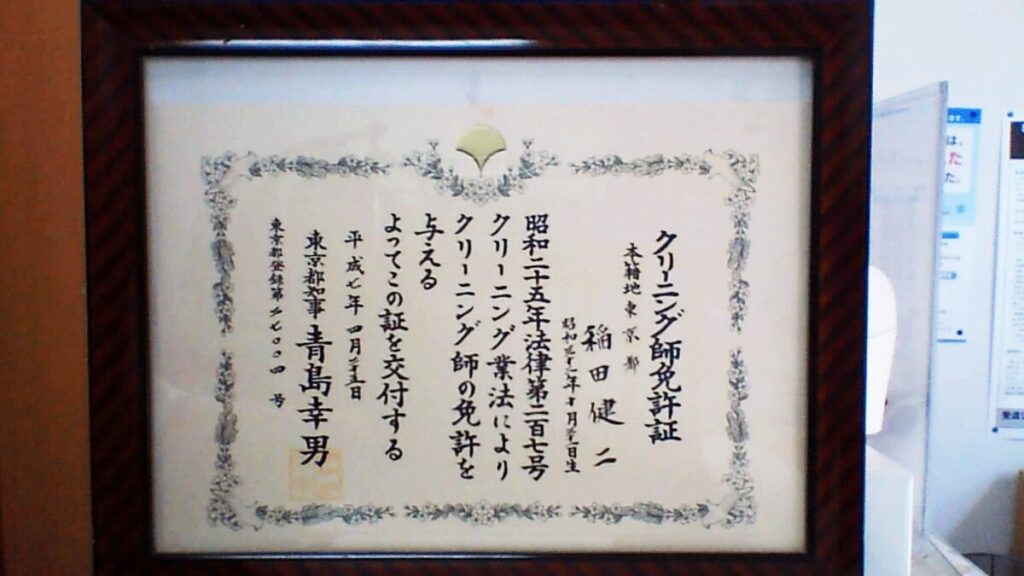 クリーニング師免許証
本籍地 東京都
稲田健二
昭和二十五年法律第二百七号
クリーニング業法により
クリーニング師の免許を
与える
よってこの証を交付する
平成七年四月二十五日
東京都知事 青島幸男